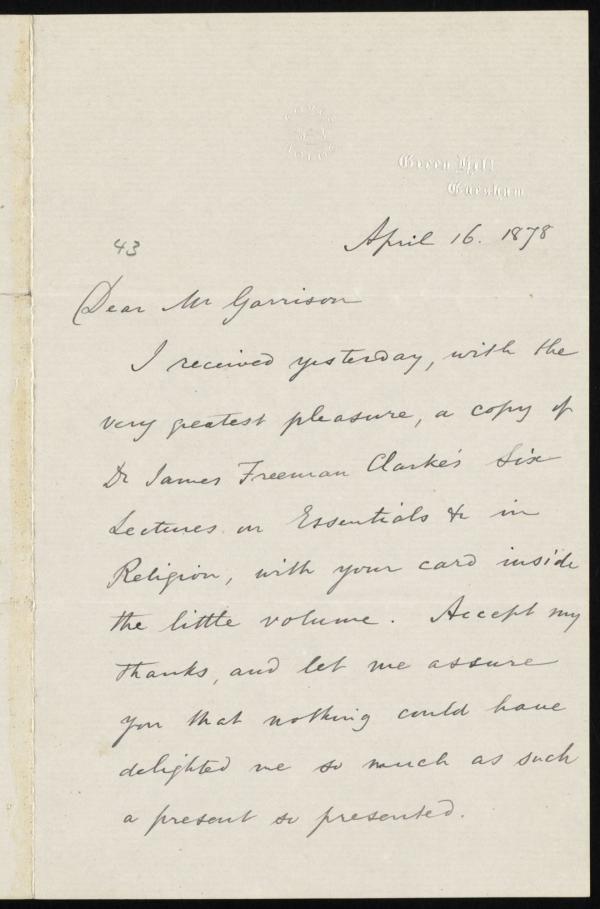 Green Hill
Evesham
April 16. 1878
43
Dear Mr Garrison
I received yesterday, with the
very greatest pleasure, a copy of
Dr James Freeman Clarke's Six
Lectures on Essentials &c in
Religion, with your card inside
the little volume. Accept my
thanks, and let me assure
you that nothing could have
delighted me so much as such
a present so presented.